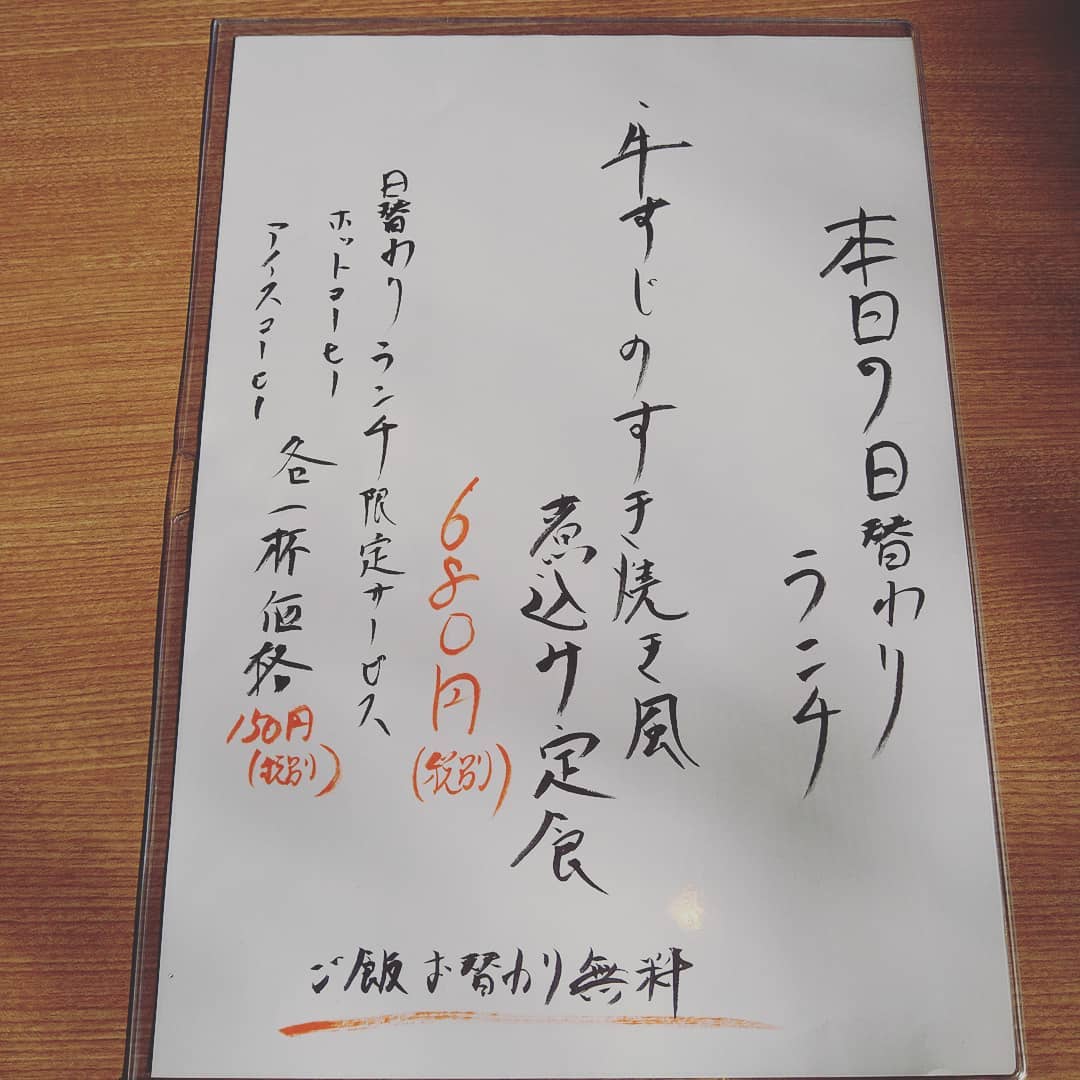 本日の日替わり
ランチ
牛すじのすき焼き風
煮込み定食
680円
(税別)
日替わりランチ限定サービス
ホットコーヒー
アイスコーヒー
各一杯価格
150円
(税別)
ご飯お替わり無料